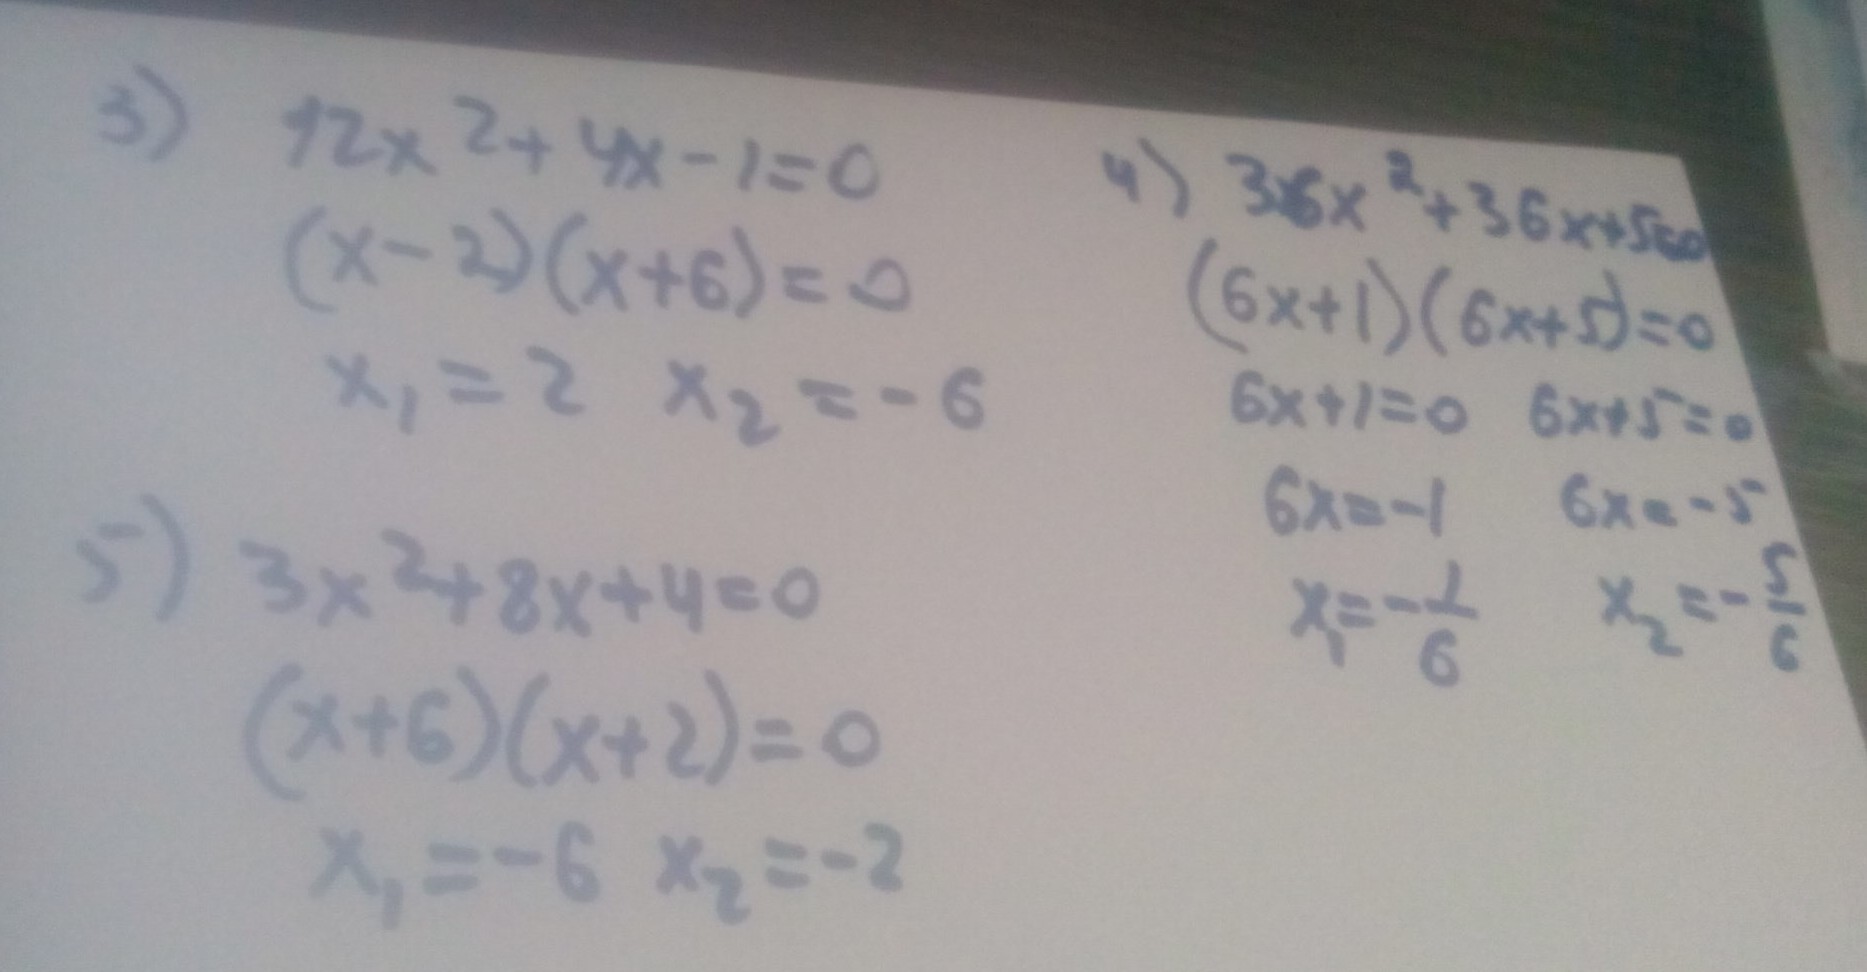 3) 12x²+4x-1=0
(x-2)(x+6)=0
x₁=2 x₂=-6
4) 36x²+36x+5=0
(6x+1)(6x+5)=0
6x+1=0 6x+5=0
6x=-1 6x=-5
x₁=-1/6 x₂=-5/6
5) 3x²+8x+4=0
(x+6)(x+2)=0
x₁=-6 x₂=-2